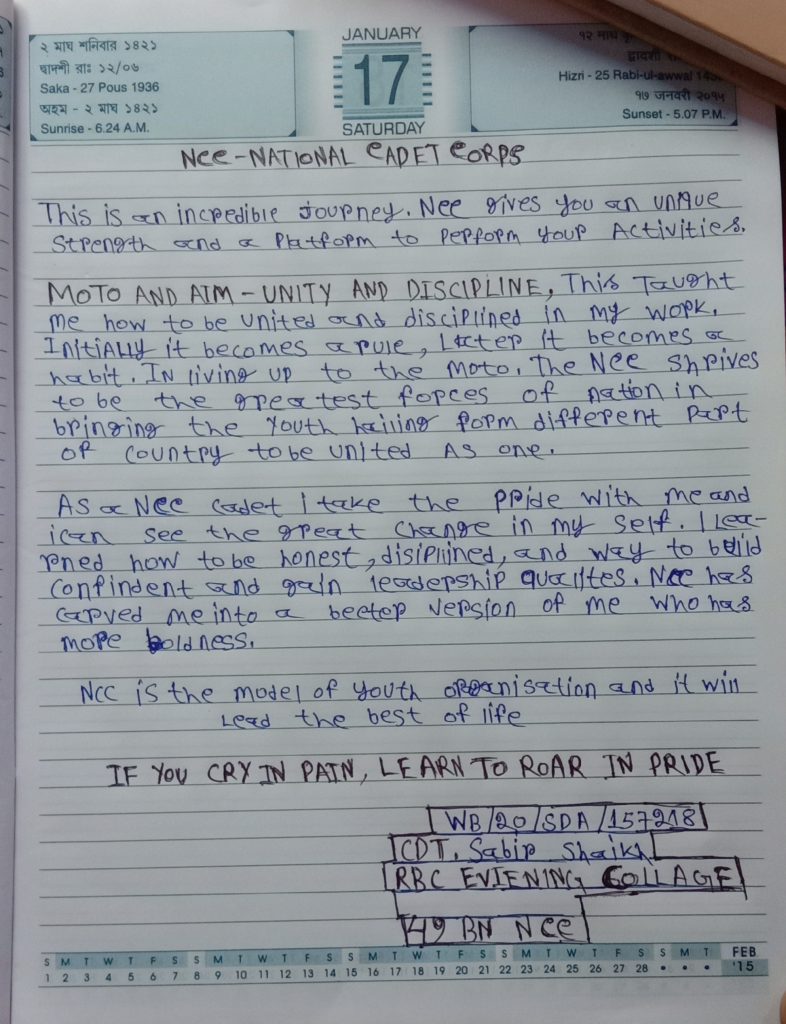 JANUARY
17
SATURDAY
২ মাঘ শনিবার ১৪২১
দ্বাদশী রাঃ ১২/০৬
Saka - 27 Pous 1936
অহম - ২ মাঘ ১৪২১
Sunrise - 6.24 A.M.
১২ মাঘ
দ্বাদশী
Hizri - 25 Rabi-ul-awwal
১৭ জানুৱারী ২০১৫
Sunset - 5.07 P.M.
NCC-NATIONAL CADET CORPS
This is an incredible Journey. NCC gives you an unique
Strength and a Platform to Perform your Activities.
MOTO AND AIM - UNITY AND DISCIPLINE, This Taught
me how to be united and disciplined in my work.
Initially it becomes a rule, Later it becomes a
habit. In living up to the moto, The NCC Shrives
to be the greatest forces of nation in
bringing the Youth hailing form different Part
of Country to be united As one.
As a NCC Cadet I take the Pride with me and
i can see the great Change in my Self. I lea-
rned how to be honest, disiplined, and way to build
Confindent and gain leadership qualites. NCC has
Carved me into a beeter version of me Who has
more boldness.
NCC is the model of youth organisation and it will
Lead the best of life
IF YOU CRY IN PAIN, LEARN TO ROAR IN PRIDE
WB/20/SDA/157218
CDT. Sabir Shaikh
RBC EVIENING COLLAGE
49 BN NCC
S M T W T F S S M T W T F S S M T W T F S S M T W T F S S M T FEB
1 2 3 4 5 6 7 8 9 10 11 12 13 14 15 16 17 18 19 20 21 22 23 24 25 26 27 28 • • • '15